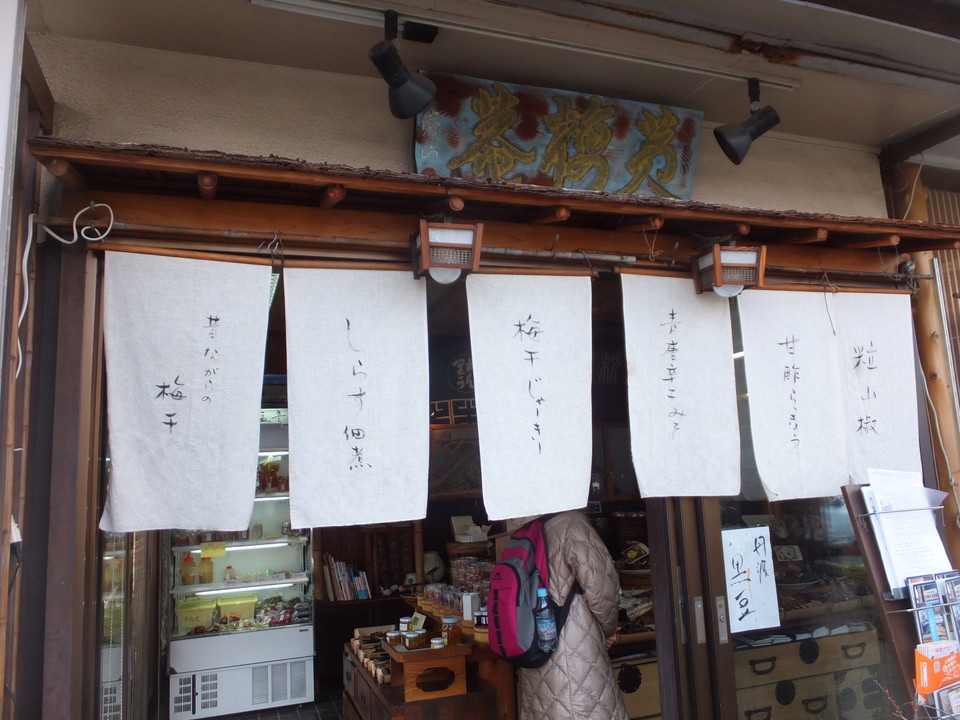 昔ながらの
梅干
しらす佃煮
梅干じゃーきー
青唐辛子みそ
甘酢らっきょう
粒山椒
丹波
黒豆